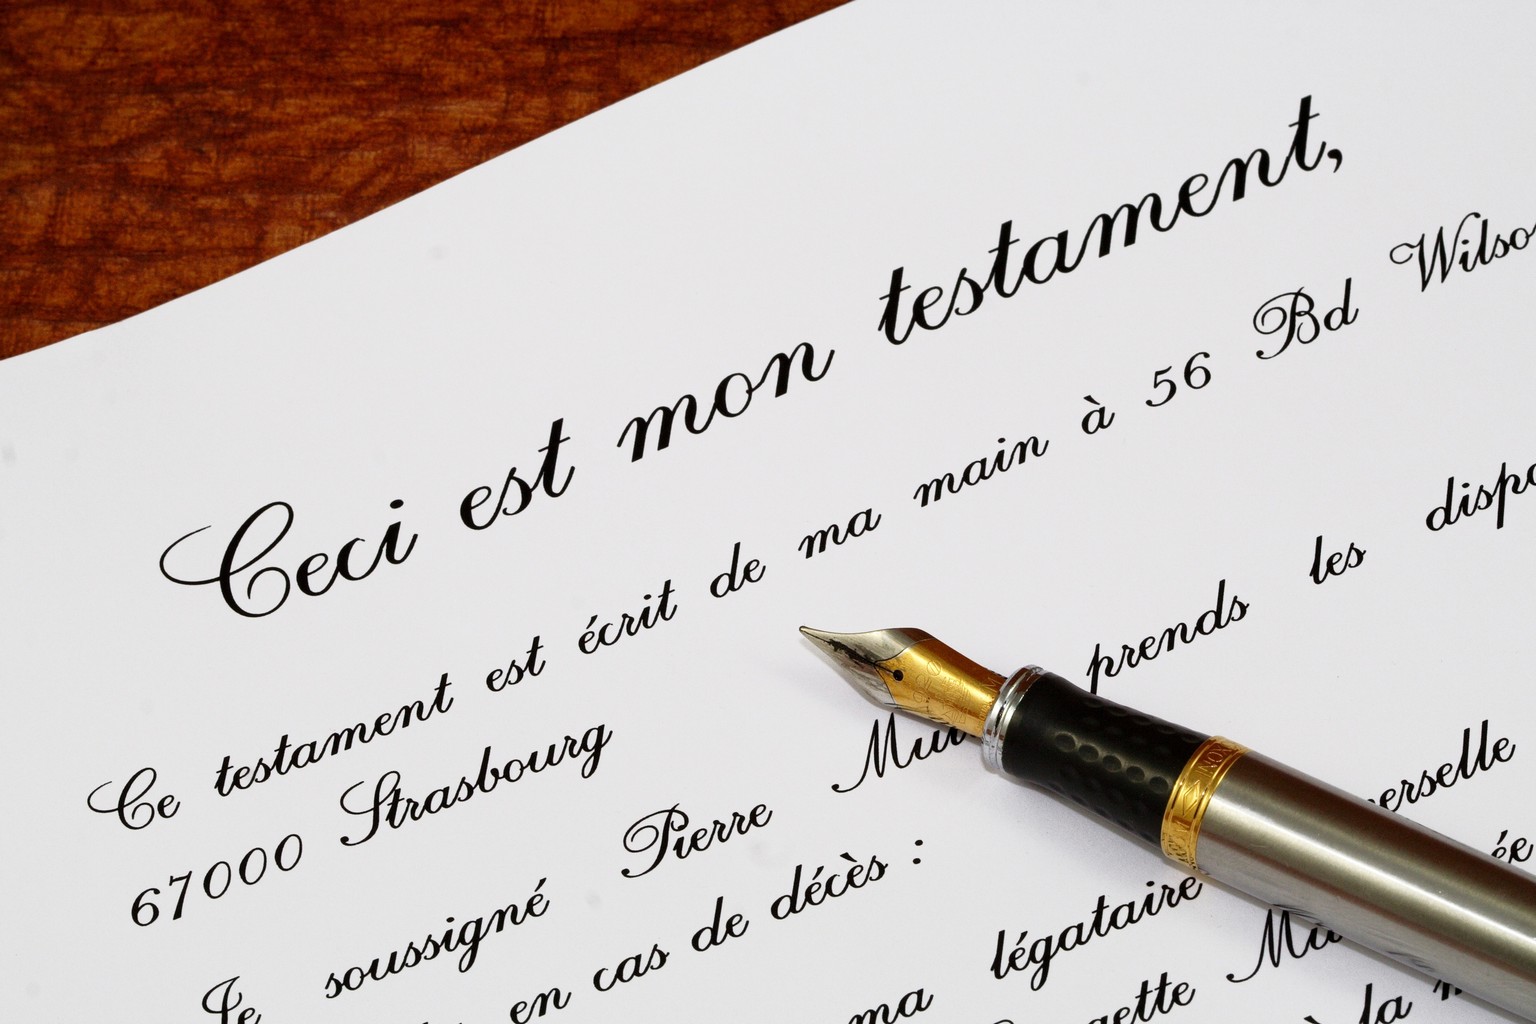 Ceci est mon testament,
Ce testament est écrit de ma main à 56 Bd
67000 Strasbourg
Je soussigné Pierre prends les
en cas de décès :
ma légataire
la